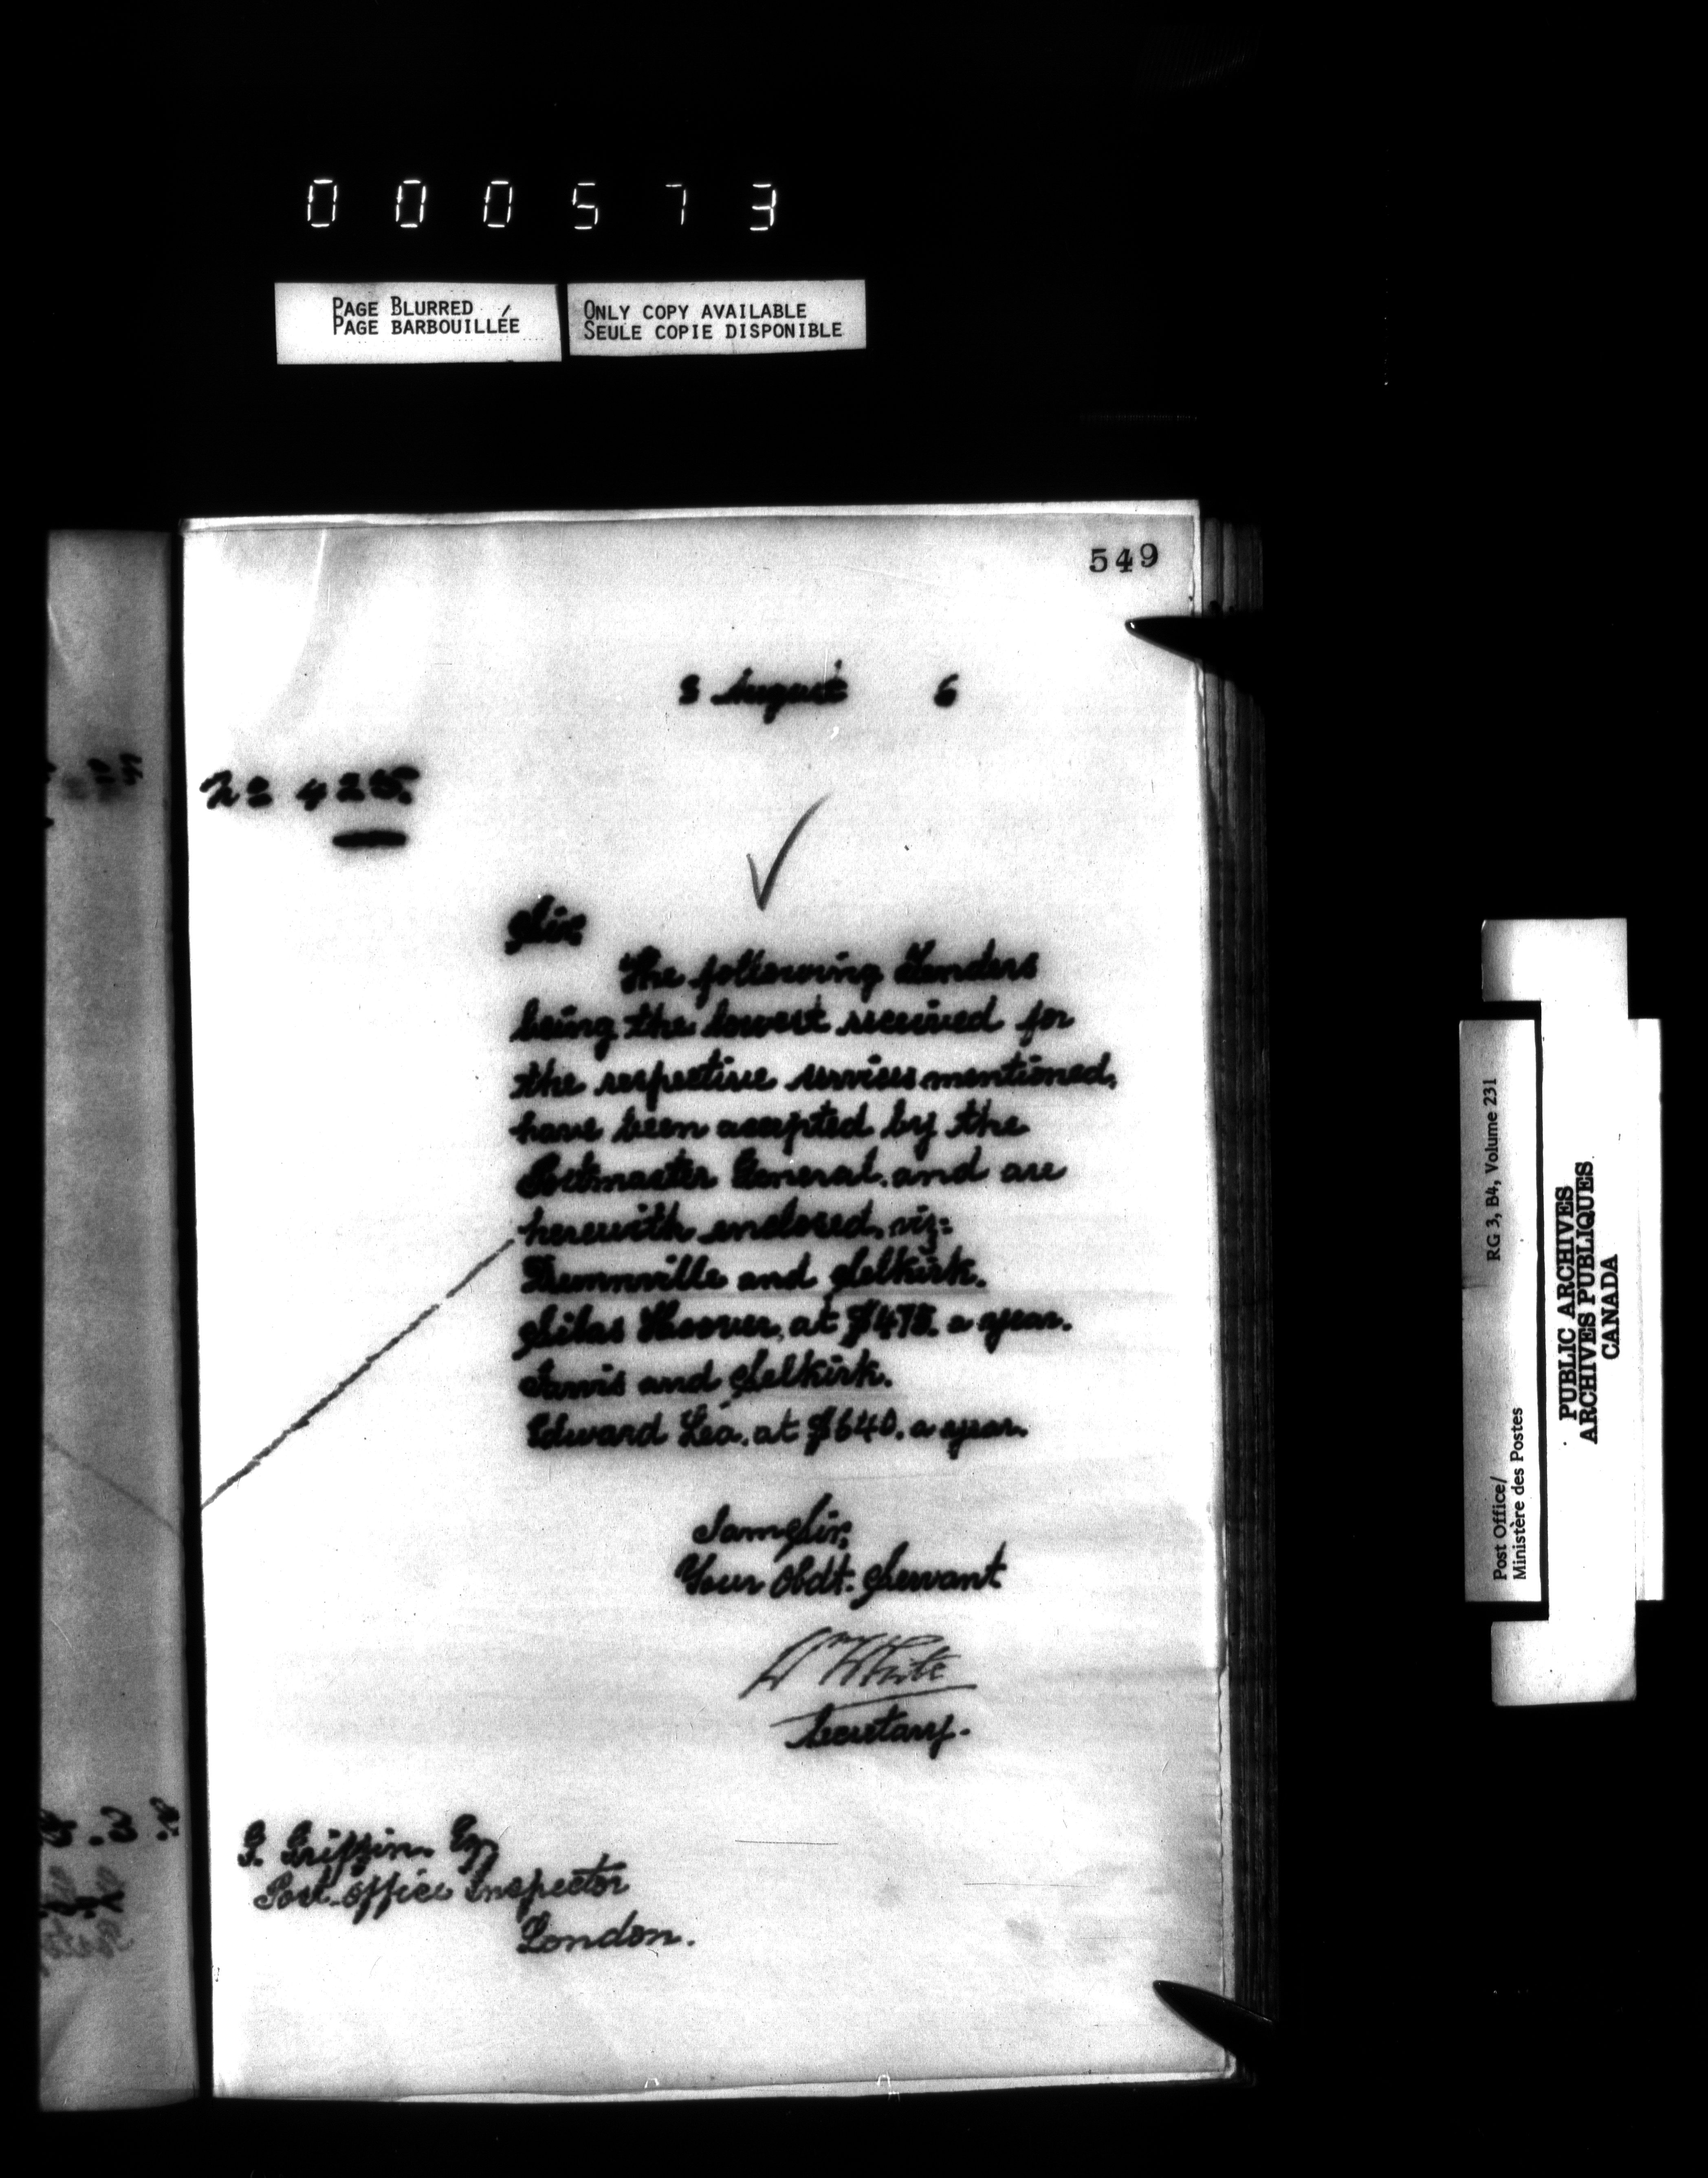 000573
PAGE BLURRED
PAGE BARBOUILLÉE
ONLY COPY AVAILABLE
SEULE COPIE DISPONIBLE
549
3 August 6
No 425.
Sir,
The following Tenders
being the lowest received for
the respective services mentioned,
have been accepted by the
Postmaster General. and are
herewith enclosed, viz:
Dunnville and Selkirk.
Silas Hoover, at $475. a year.
Jarvis and Selkirk.
Edward Lea. at $640. a year.
I am Sir,
Your Obdt. Servant
Wm White
Secretary.
G. Griffin. Esq
Post-Office Inspector
London.
RG 3, B4, Volume 231
Post Office/
Ministère des Postes
PUBLIC ARCHIVES
ARCHIVES PUBLIQUES
CANADA